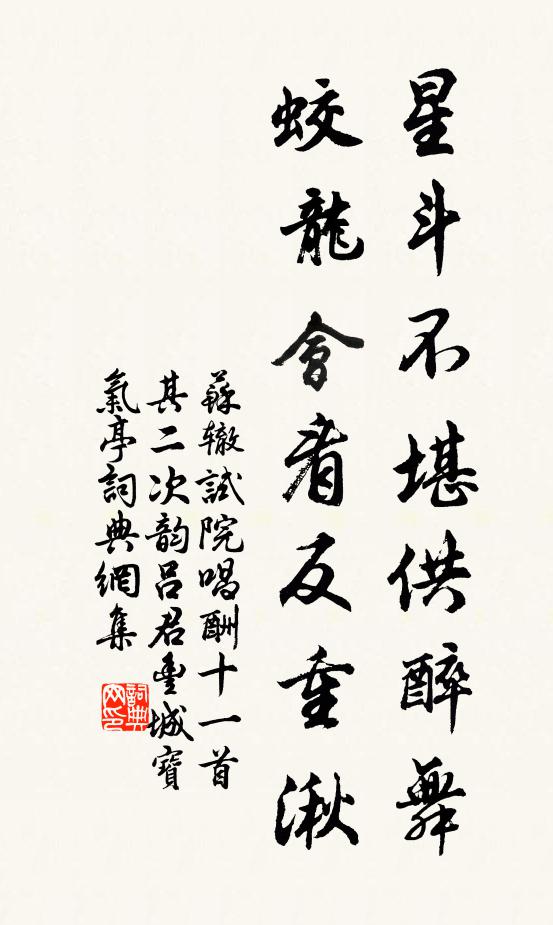 星斗不堪供醉舞
蛟龍會看反重湫
蘇辙試院唱酬十一首
其二次韵呂君豐城寶
氣亭詞典網集
詞典网印